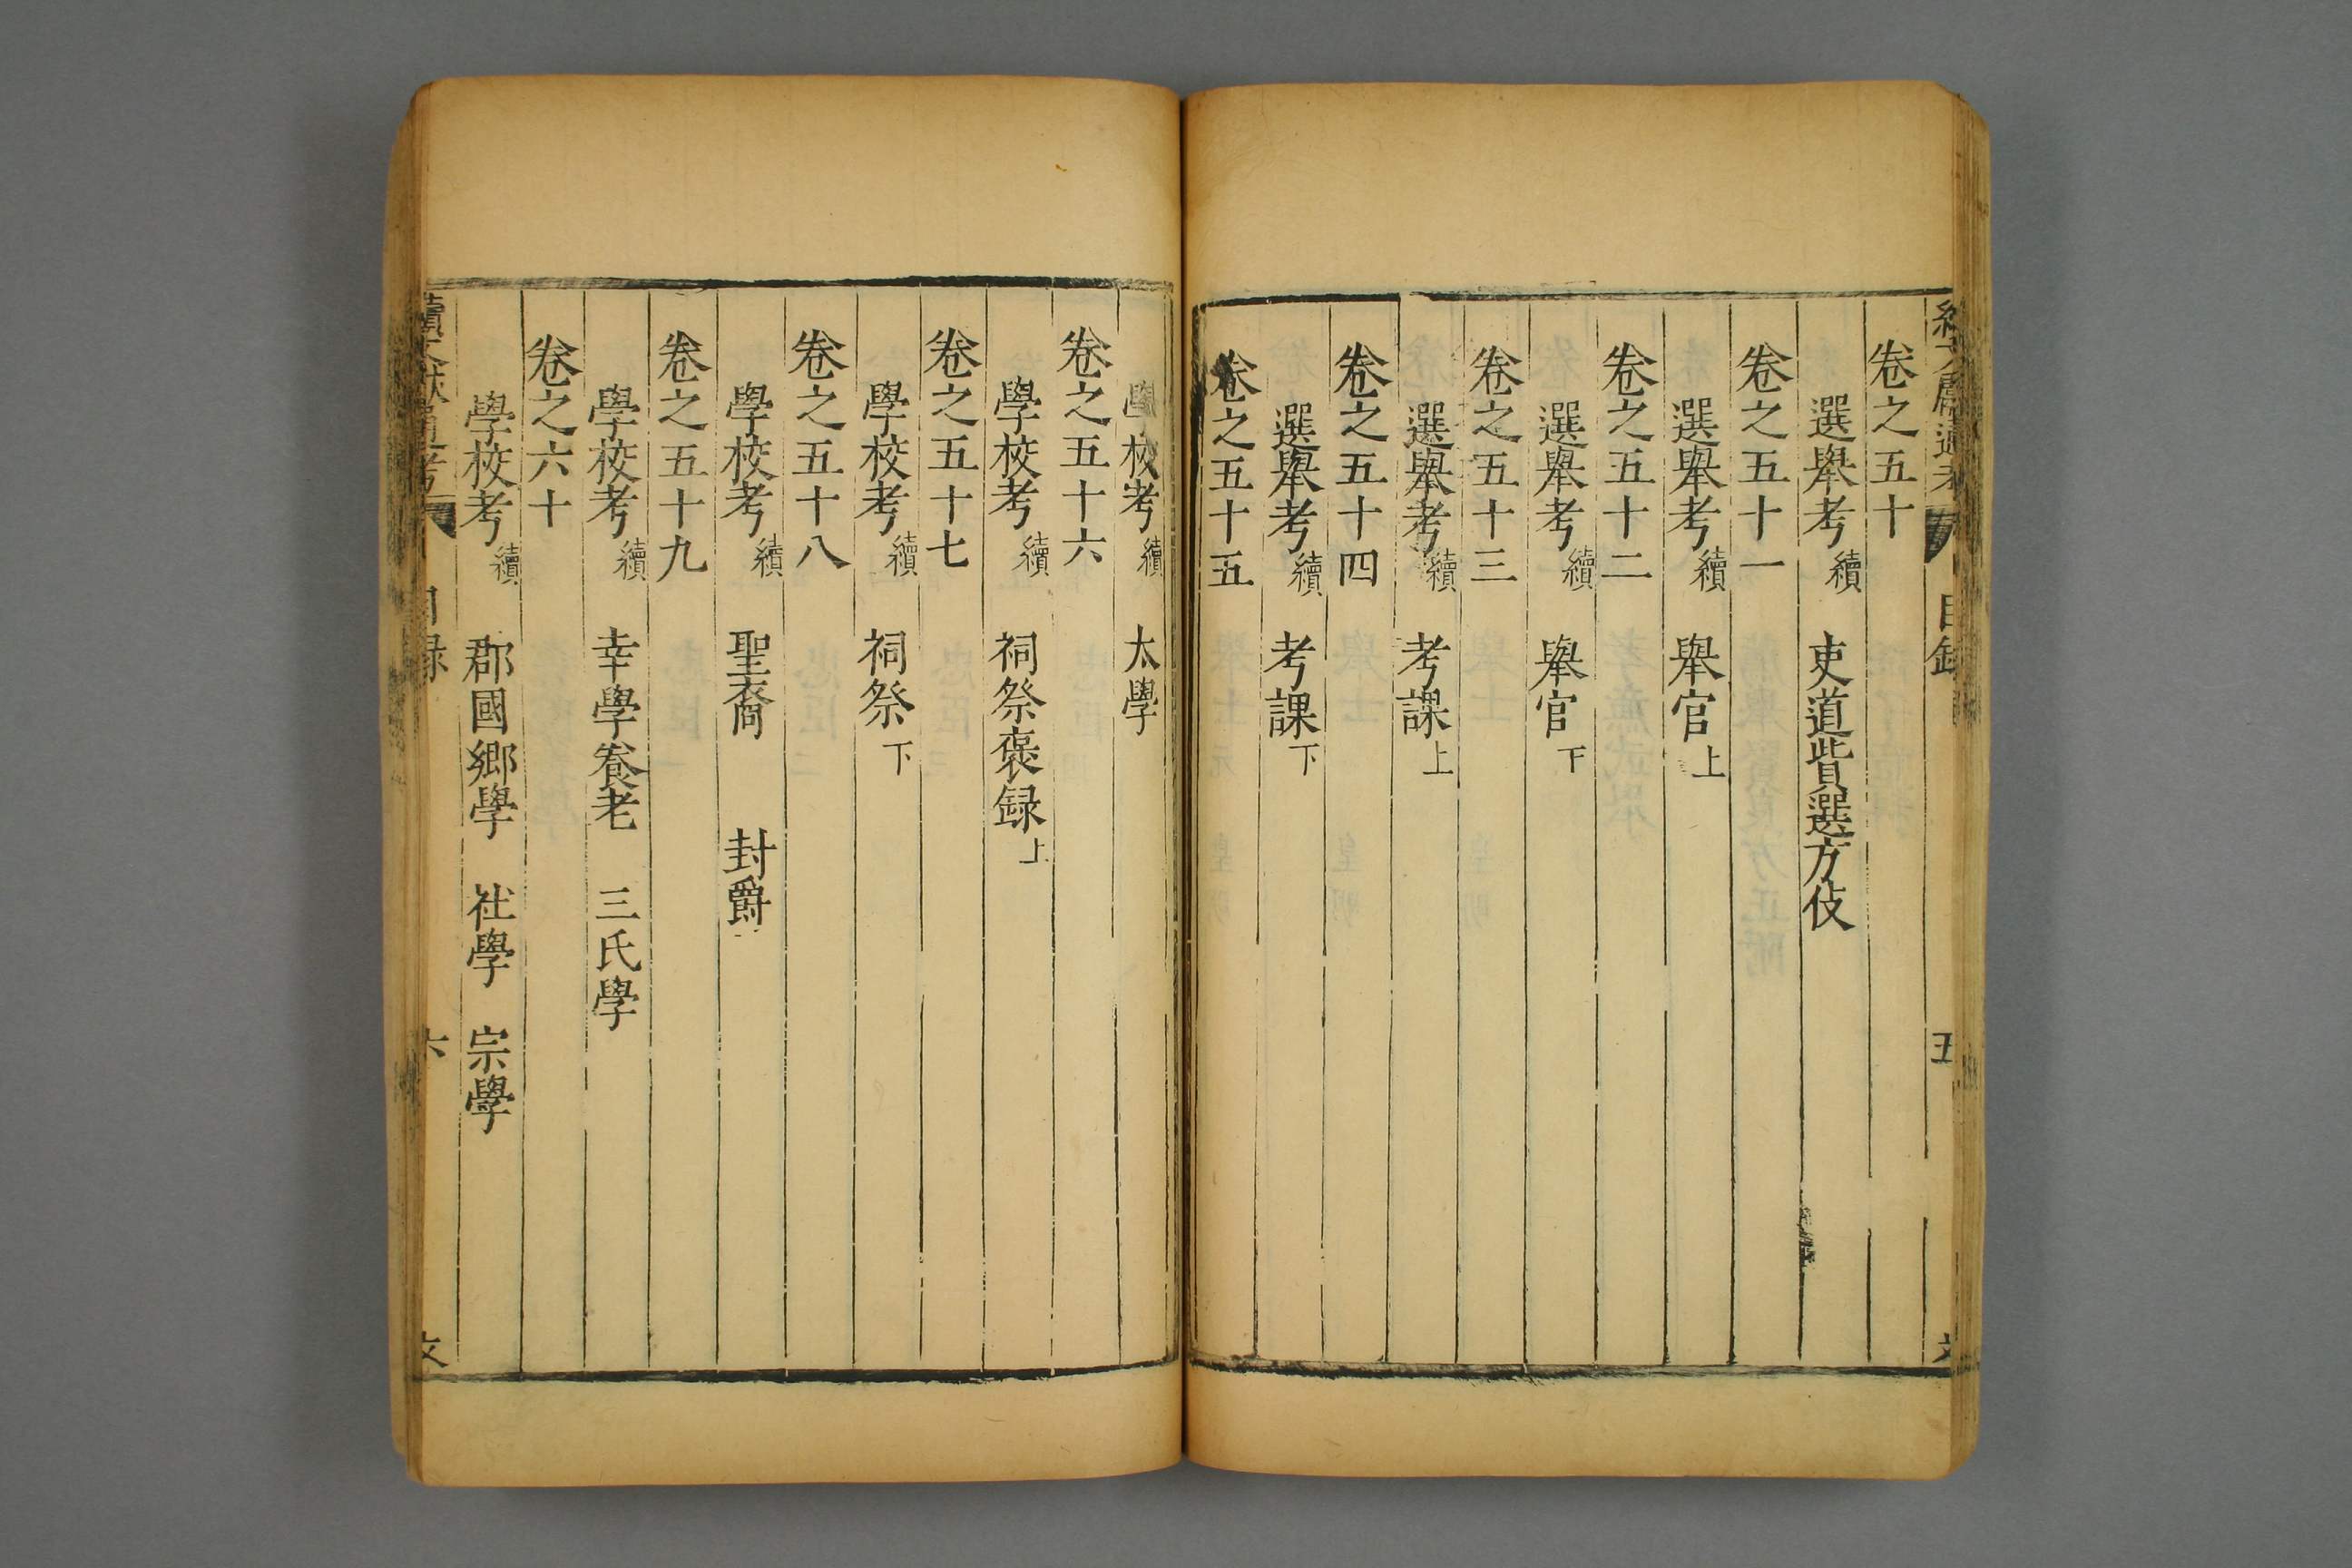 續文獻通考 目録 五 文
卷之五十
選舉考 續 吏道貲選方伎
卷之五十一
選舉考 續 舉官 上
卷之五十二
選舉考 續 舉官 下
卷之五十三
選舉考 續 考課 上
卷之五十四
選舉考 續 考課 下
卷之五十五
學校考 續 太學
卷之五十六
學校考 續 祠祭褒録 上
卷之五十七
學校考 續 祠祭 下
卷之五十八
學校考 續 聖裔 封爵
卷之五十九
學校考 續 幸學養老 三氏學
卷之六十
學校考 續 郡國鄉學 社學 宗學
續文獻通考 目録 六 文